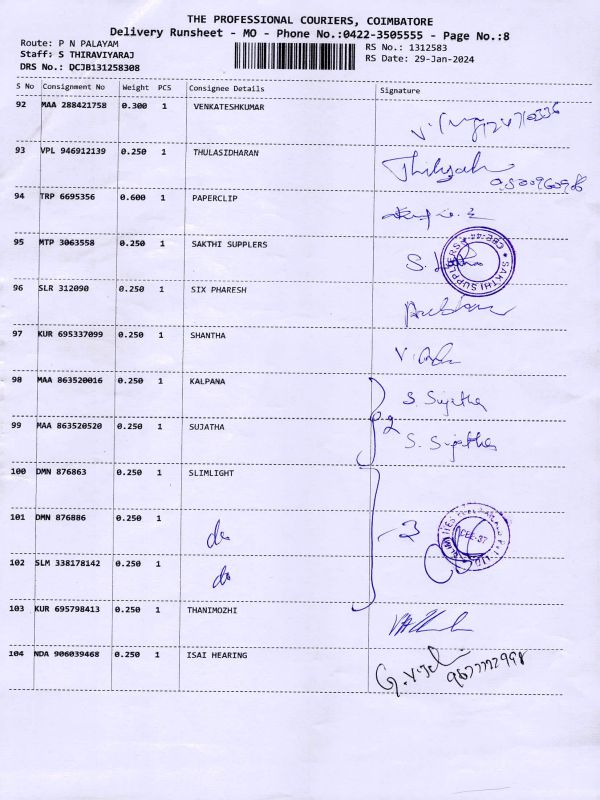 THE PROFESSIONAL COURIERS, COIMBATORE
Delivery Runsheet - MO - Phone No.:0422-3505555 - Page No.:8
Route: P N PALAYAM
Staff: S THIRAVIYARAJ
DRS No.: DCJB131258308
RS No.: 1312583
RS Date: 29-Jan-2024
S No Consignment No Weight PCS Consignee Details Signature
92 MAA 288421758 0.300 1 VENKATESHKUMAR
93 VPL 946912139 0.250 1 THULASIDHARAN
94 TRP 6695356 0.600 1 PAPERCLIP
95 MTP 3063558 0.250 1 SAKTHI SUPPLERS
SAKTHI SUPPLIERS * CBE-44 *
96 SLR 312090 0.250 1 SIX PHARESH
97 KUR 695337099 0.250 1 SHANTHA
98 MAA 863520016 0.250 1 KALPANA S. Sujatha
2
99 MAA 863520520 0.250 1 SUJATHA S. Sujatha
100 DMN 876863 0.250 1 SLIMLIGHT
101 DMN 876886 0.250 1 do 3
CBE-37
102 SLM 338178142 0.250 1 do
103 KUR 695798413 0.250 1 THANIMOZHI
104 NDA 906039468 0.250 1 ISAI HEARING